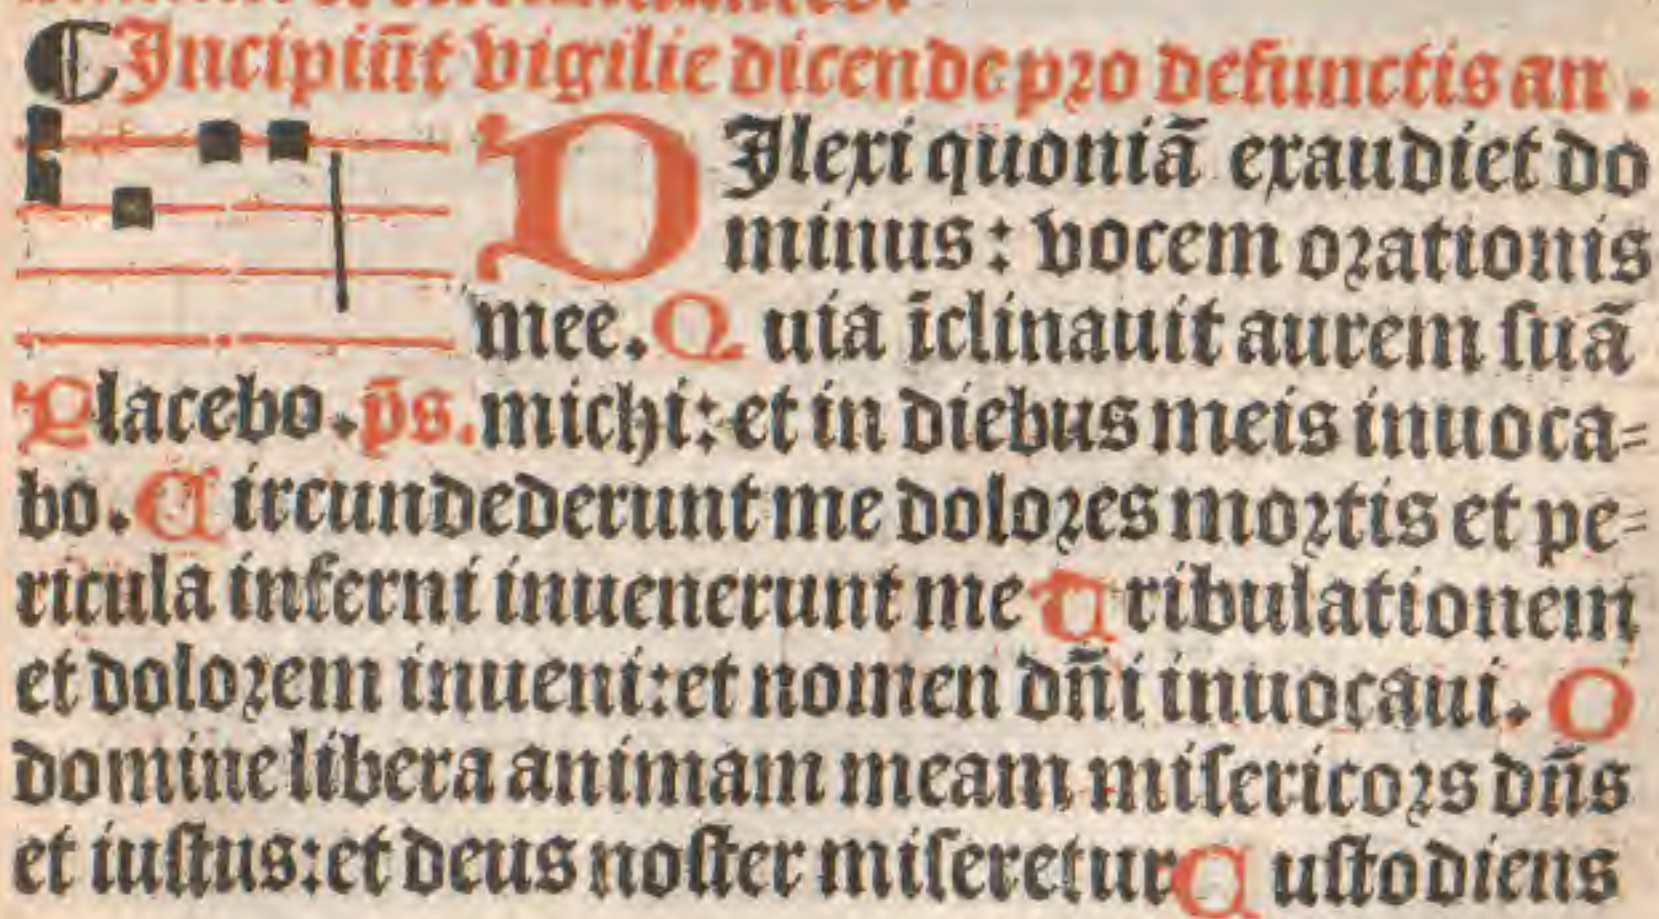 Incipiũt vigilie dicende pro defunctis an.
DIlexi quoniã exaudiet do
minus: vocem orationis
mee. Quia ĩclinauit aurem suã
Placebo. p̃s. michi: et in diebus meis inuoca=
bo. Circundederunt me dolores mortis et pe=
ricula inferni inuenerunt me Tribulationem
et dolorem inueni: et nomen dñi inuocaui. O
domine libera animam meam misericors dñs
et iustus: et deus noster miseretur Custodiens